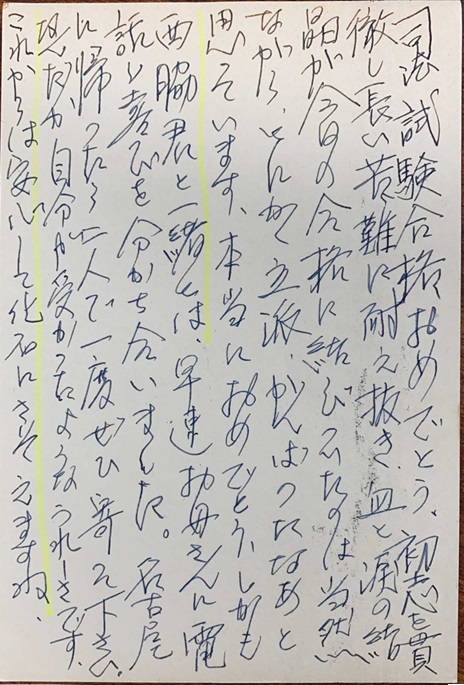 司法試験合格おめでとう、初志を貫
徹し長い苦難に耐え抜き、血と涙の結
晶が今日の合格に結びついたのは当然
ながら、とにかく立派、がんばったなあと
思っています、本当におめでとう、しかも
西脇君と一緒とは、早速お母さんに電
話し喜びを分かち合いました。名古屋
に帰ったら二人で一度ぜひ寄って下さい。
恐だが自分が受かったようなうれしさです、
これからは安心して化石にさそえますね、